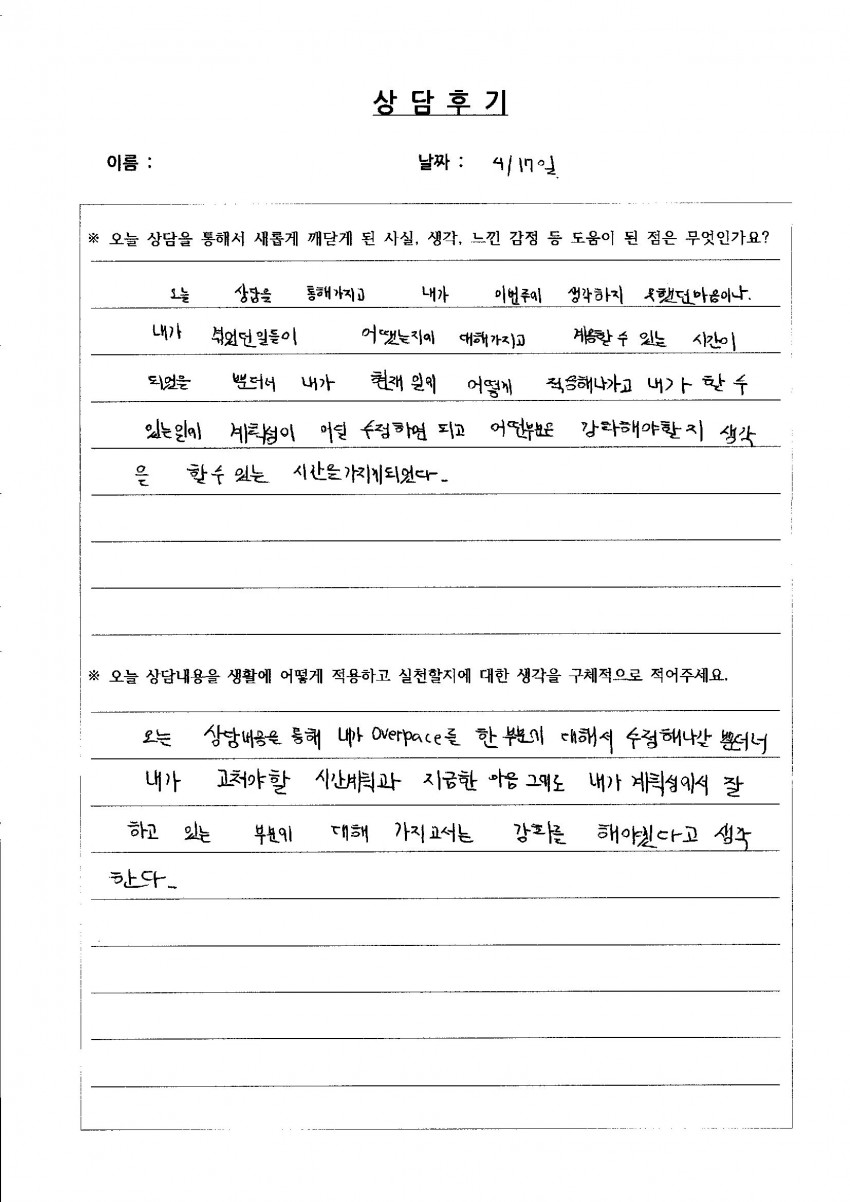 상 담 후 기
이름 :
날짜 : 4/17일
※ 오늘 상담을 통해서 새롭게 깨닫게 된 사실, 생각, 느낀 감정 등 도움이 된 점은 무엇인가요?
오늘 상담을 통해가지고 내가 이번주에 생각하지 못했던마음이나.
내가 겪었던일들이 어땠는지에 대해가지고 계속할 수 있는 시간이
되었을 뿐더러 내가 현재 일에 어떻게 적응해나가고 내가 할 수
있는일에 계획성이 어딜 수정하면 되고 어떤부분은 강화해야할지 생각
을 할 수 있는 시간을가지게되었다.
※ 오늘 상담내용을 생활에 어떻게 적용하고 실천할지에 대한 생각을 구체적으로 적어주세요.
오는 상담내용을 통해 내가 Overpace를 한 부분에 대해서 수정해나갈 뿐더러
내가 고쳐야할 시간계획과 지금한 마음 그대로 내가 계획성에서 잘
하고 있는 부분에 대해 가지고서는 강화를 해야된다고 생각
한다.